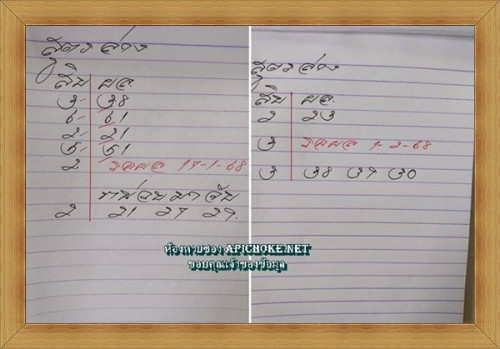 สูตรล่าง
สิบ ผล.
3 38
6 61
2 21
5 51
2 รอผล 17-1-68
2 21 27 29.
สูตรล่าง
สิบ ผล.
2 23
3 รอผล 1-2-68
3 38 37 30
ห้องหวยซอง APICHOKE.NET
ขอบคุณเจ้าของข้อมูล